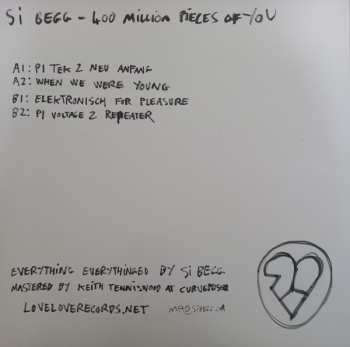 Si BEGG - 400 MILLION PIECES OF YOU
A1: PI TEK 2 NEU ANFANG
A2: WHEN WE WERE YOUNG
B1: ELEKTRONISCH FOR PLEASURE
B2: PI VOLTAGE 2 REPEATER
EVERYTHING EVERYTHINGED BY Si BEGG
MASTERED BY KEITH TENNISWOOD AT CURVEPUSHER
LOVELOVERECORDS.NET